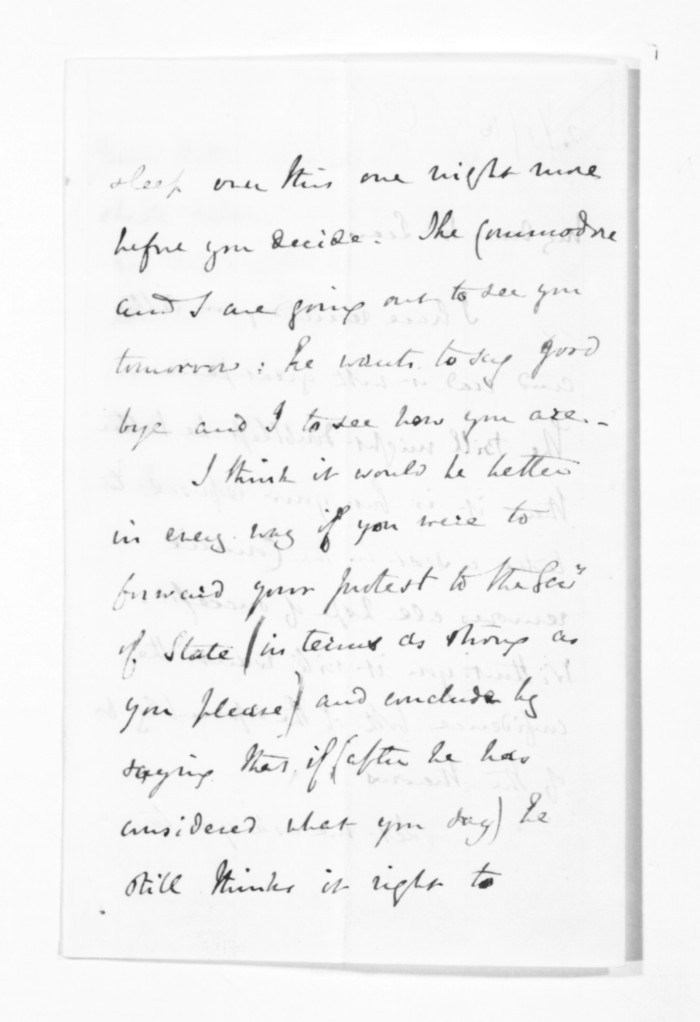 sleep over this one night more
before you decide. The Commodore
and I are going out to see you
tomorrow: he wants to say good
bye and I to see how you are.-
I think it would be better
in every way if you were to
forward your protest to the Secy
of State (in terms as strong as
you please) and conclude by
saying that, if (after he has
considered what you say) he
still thinks it right to